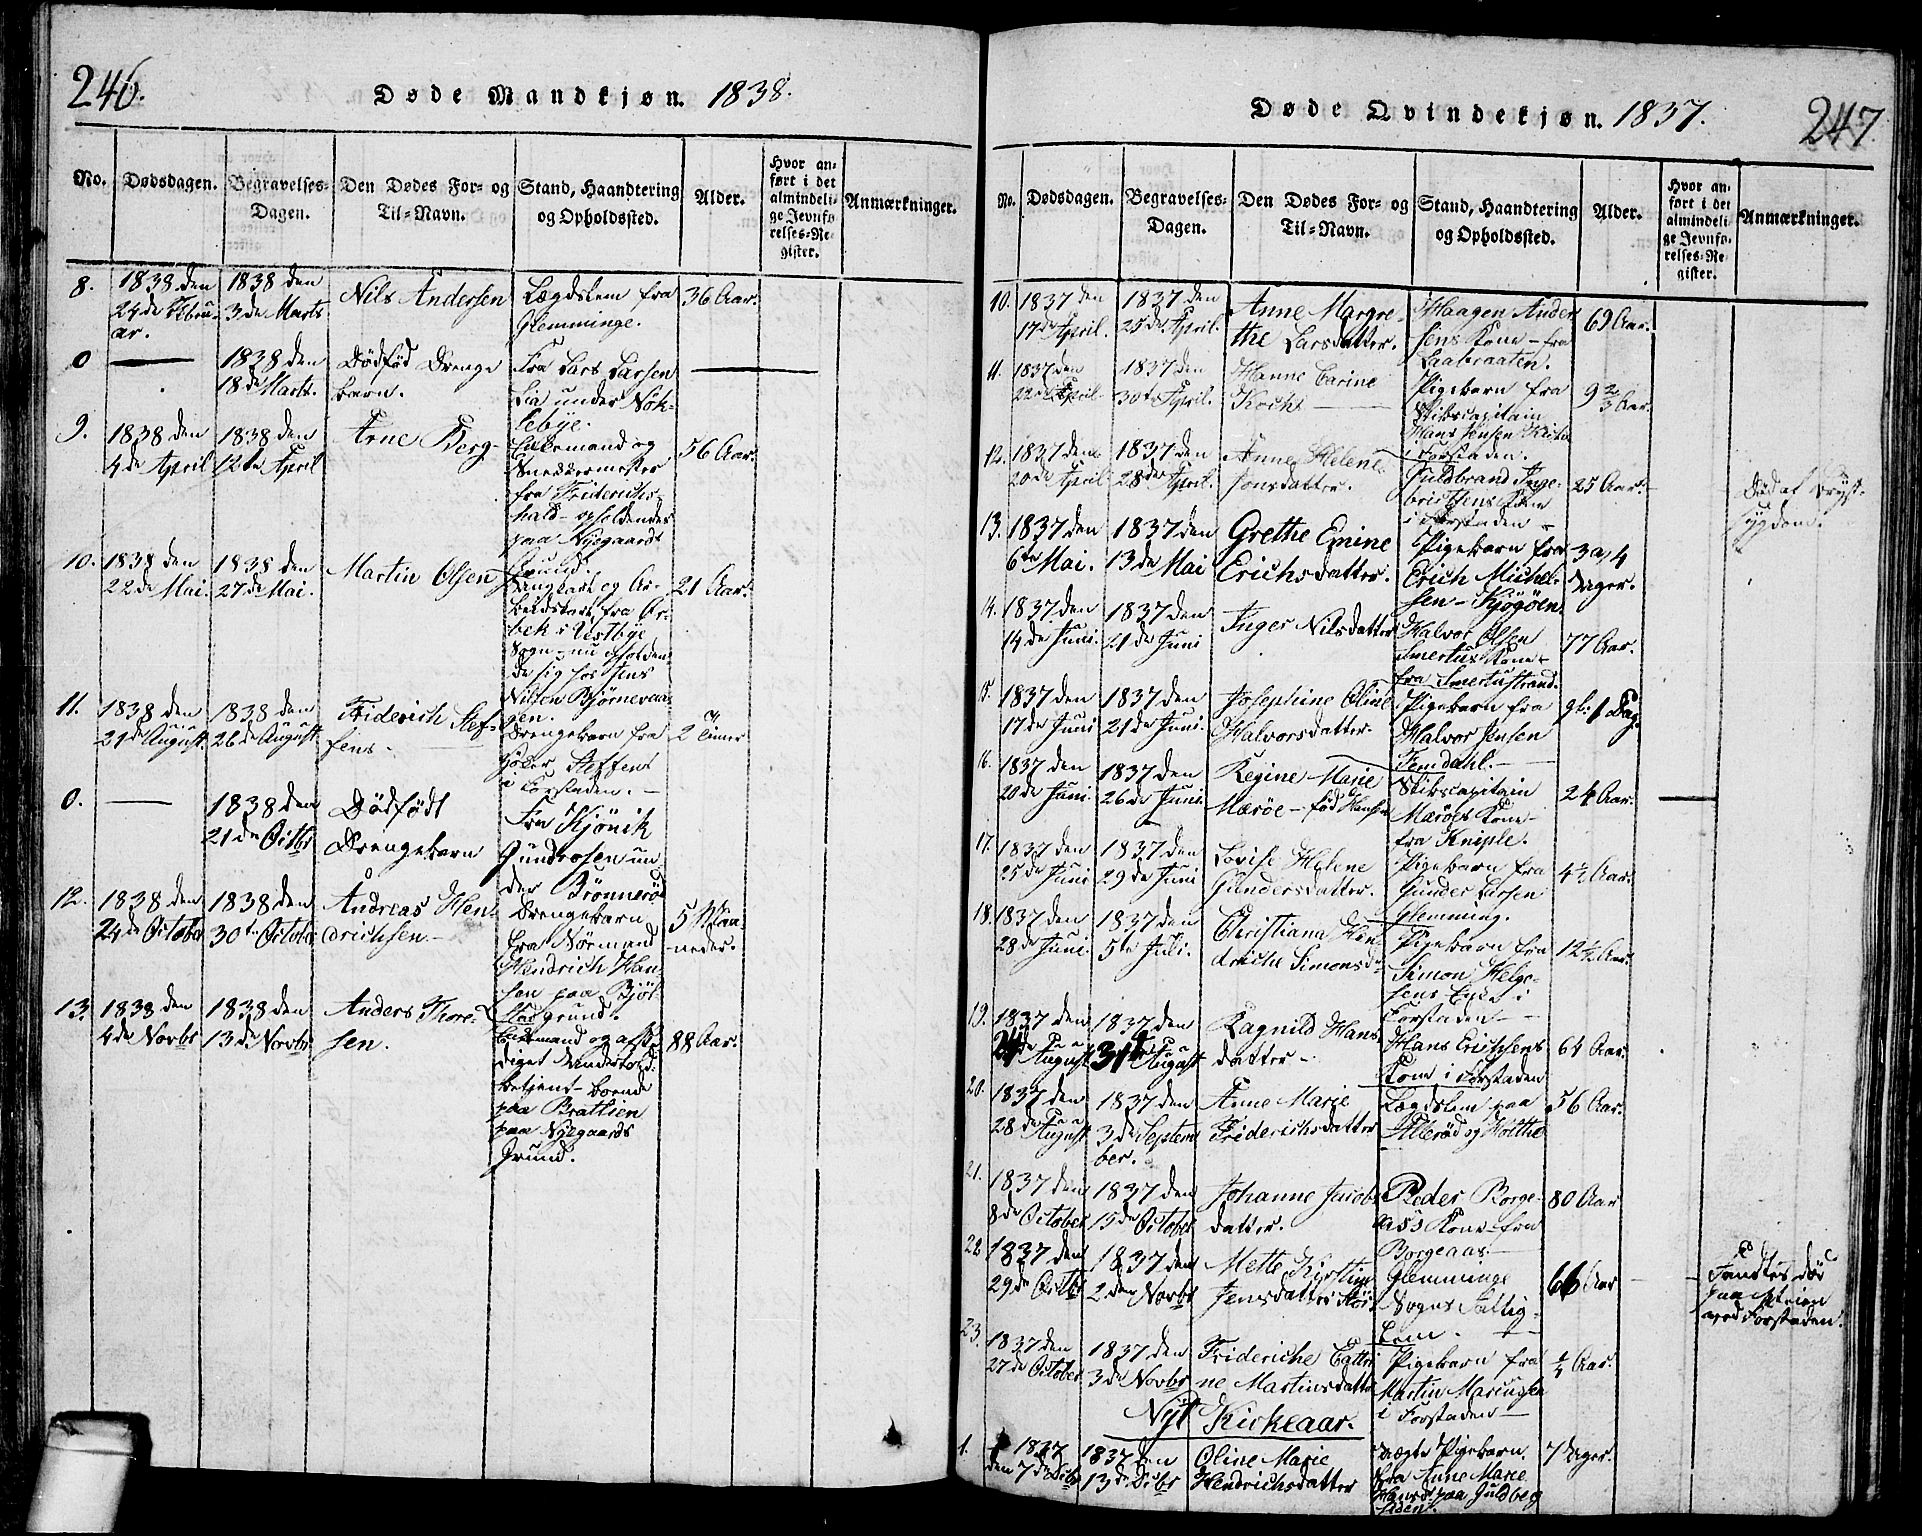 246.
Døde Mandkjøn. 1838.
No.
Dødsdagen.
Begravelses-
Dagen.
Den Dødes For- og
Til-Navn.
Stand, Haandtering
og Opholdssted.
Alder.
Hvor an-
ført i det
almindeli-
ge Jevnfø-
relses-Re-
gister.
Anmærkninger.
8.
1838 den
24de Febru-
ar.
1838 den
3de Marts
Nils Andersen
Lægdslem fra
Glemminge.
36 Aar.
0
1838 den
18de Marts.
Dödföd Drenge
barn.
Fra Lars Larsen
Lia under Nök-
lebye.
9.
1838 den
4de April
1838 den
12te April
Arne Berg
Enkemand og
Sneckermester
fra Friderichs-
hald - opholdendes
paa Nygaards
Grund.
56 Aar.
10.
1838 den
22de Mai.
1838 den
27de Mai.
Martin Olsen
Ungkarl og Ar-
beidskarl fra
bek i Vestbye
Sogn - nu opholden-
de sig hos Jens
Nilsen Bjørnevaa-
gen.
21 Aar.
11.
1838 den
21de August
1838 den
26de August
Friderich Stef-
fens
Drengebarn fra
Steffens
i Forstaden.
2 Timer
0.
1838 den
21de Octbr
Dödfödt
Drengebarn
Fra Kjönik
Gundrosen un-
der Brönneröd
12.
1838 den
24de October
1838 den
30te October
Andreas Hen-
drichsen
Drengebarn
fra Nörmand
Hendrich Han-
sen paa
Stadgrund.
5 Maa-
neder.
13.
1838 den
4de Novbr
1838 den
13de Novbr
Anders Thore-
sen.
Enkemand og afske-
diget Undertold-
betjent - boende
paa Brattlien
paa Nygaards
Grund.
88 Aar.
Døde Qvindekjøn. 1837.
247
No.
Dødsdagen.
Begravelses-
Dagen.
Den Dødes For- og
Til-Navn.
Stand, Haandtering
og Opholdssted.
Alder.
Hvor an-
ført i det
almindeli-
ge Jevnfø-
relses-Re-
gister.
Anmærkninger.
10.
1837 den
17de April.
1837 den
25de April.
Anne Margre-
the Larsdatter.
Haagen Ander
sens Kone - fra
Laabraaten.
69 Aar.
11.
1837 den
22de April.
1837 den
30te April.
Hanne Carine
Koch
Pigebarn fra
Skibscapitain
Hans Jensen
i Forstaden.
9 2/3 Aar.
12.
1837 den
20de April
1837 den
28de April.
Anne Helene
Jonsdatter.
Guldbrand Inge-
brigtsens Kone
i Forstaden
25 Aar.
Död af Bryst-
sygdom.
13.
1837 den
6te Mai.
1837 den
13de Mai
Grethe Emine
Erichsdatter.
Pigebarn fra
Erich Michel-
sen - Kjøgöen
3 a 4
Dager.
14.
1837 den
14de Juni.
1837 den
21de Juni
Inger Nilsdatter
Halvor Olsen
Smertus Kone
fra Smertustrand.
77 Aar.
15.
1837 den
17de Juni
1837 den
21de Juni.
Josephine Oline
Halvorsdatter.
Pigebarn fra
Halvor Jensen
Femdahl.
1 Dag.
16.
1837 den
20de Juni.
1837 den
26de Juni.
Regine Marie
Maröe - föd Hansen
Skibscapitain
Maröes Kone
fra Kniple.
24 Aar.
17.
1837 den
25de Juni
1837 den
29de Juni
Lovise Helene
Gundersdatter.
Pigebarn fra
Gunder Larsen
Glemming.
4½ Aar.
18.
1837 den
28de Juni
1837 den
5te Juli.
Christiana Hen-
driche Simonsd
Pigebarn fra
Simon Helge-
sens Enke i
Forstaden
12½ Aar.
19.
1837 den
24de August
1837 den
31te August
Ragnild Hans
datter
Hans Erichsens
Kone i Forstaden
64 Aar.
20.
1837 den
28de August
1837 den
3de Septem
ber.
Anne Marie
Friderichsdatter
Lægdslem paa
Alleröd og Holthe
56 Aar.
21.
1837 den
8de October
1837 den
15de October
Johanne Jacobs
datter.
Peder Borge-
aas's Kone fra
Borgeaas
80 Aar
22
1837 den
29de Octbr
1837 den
2den Novbr
Mette Kirstine
Jensdatter
Glemminge
Sogns Fattig-
lem.
66 Aar
Fandtes död
paa Veien
ved Forstaden.
23.
1837 den
27de October
1837 den
3de Novbr
Frideriche Cathri
ne Martinsdatter
Pigebarn fra
Martin
i Forstaden
¼ Aar.
Nyt Kirkeaar.
1.
1837
den 7de Decbr
1837 den
13de Decbr
Oline Marie
Hendrichsdatter
uægte Pigebarn.
fra Anne Marie
Hansd. paa Guldberg
siden.
7 Dager.